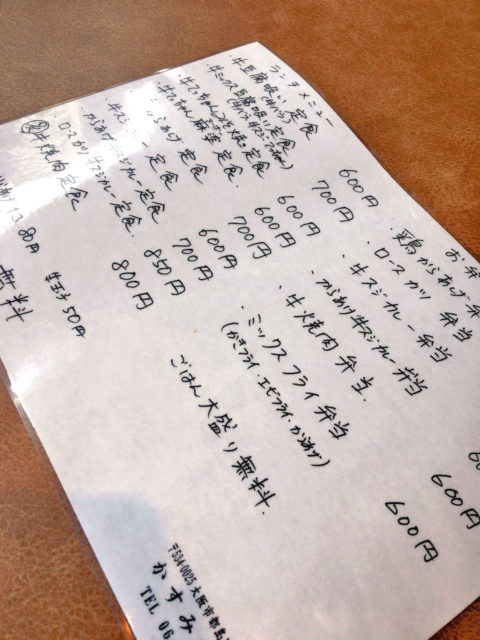 ランチメニュー
・牛豆腐吸い定食 600円
・牛ミックス豆腐吸い定食 700円
定食 600円
定食 600円
からあげ定食 700円
牛スジカレー定食 600円
からあげ牛スジカレー定食 700円
ロースカツ定食 850円
牛焼肉定食 800円
80円
生玉子50円
無料
お弁
・鶏からあげ弁
・ロースカツ弁当
・牛スジカレー弁当
・からあげ牛スジカレー弁当
・牛焼肉弁当
・ミックスフライ弁当
(かきフライ・エビフライ・からあげ)
600円
600円
ごはん大盛り無料.
〒534-0025 大阪市都島
かすみ
TEL 06